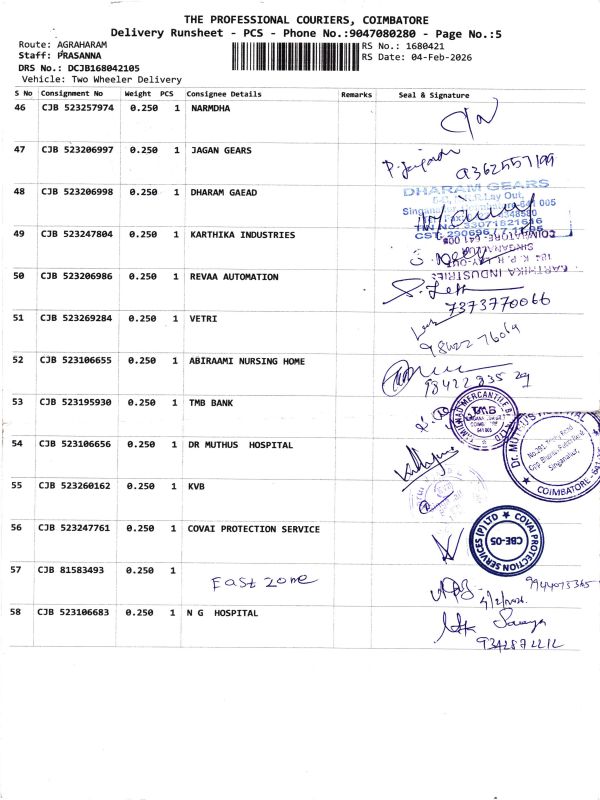 THE PROFESSIONAL COURIERS, COIMBATORE
Delivery Runsheet - PCS - Phone No.:9047080280 - Page No.:5
Route: AGRAHARAM RS No.: 1680421
Staff: PRASANNA RS Date: 04-Feb-2026
DRS No.: DCJB168042105
Vehicle: Two Wheeler Delivery
S No Consignment No Weight PCS Consignee Details Remarks Seal & Signature
46 CJB 523257974 0.250 1 NARMDHA
47 CJB 523206997 0.250 1 JAGAN GEARS
9362557199
48 CJB 523206998 0.250 1 DHARAM GAEAD
DHARAM GEARS
49 CJB 523247804 0.250 1 KARTHIKA INDUSTRIES
KARTHIKA INDUSTRIES
50 CJB 523206986 0.250 1 REVAA AUTOMATION
7373770066
51 CJB 523269284 0.250 1 VETRI
98422 76069
52 CJB 523106655 0.250 1 ABIRAAMI NURSING HOME
98422 835 29
53 CJB 523195930 0.250 1 TMB BANK
TMB
54 CJB 523106656 0.250 1 DR MUTHUS HOSPITAL
Dr. MUTHUS HOSPITAL
Singanallur,
COIMBATORE - 641
55 CJB 523260162 0.250 1 KVB
56 CJB 523247761 0.250 1 COVAI PROTECTION SERVICE
COVAI PROTECTION SERVICES (P) LTD
CBE-05
57 CJB 81583493 0.250 1
East zone
9944075365
4/2/2026.
58 CJB 523106683 0.250 1 N G HOSPITAL
9342872212